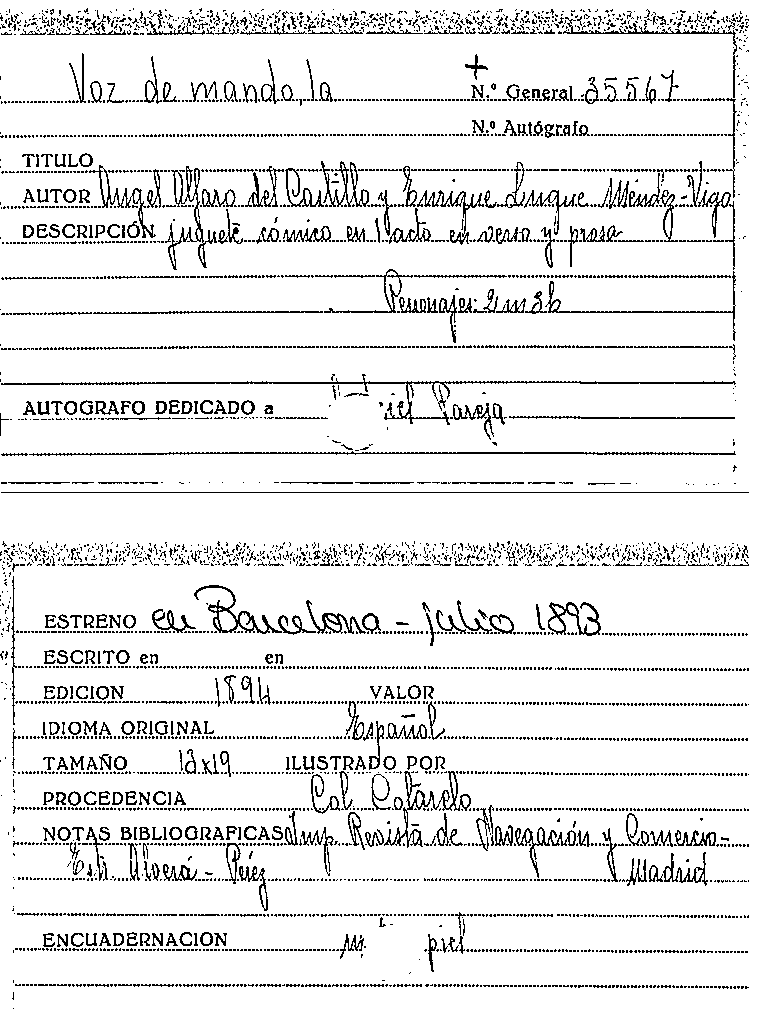 Voz de mando, la
N.º General 35567
N.º Autógrafo
TITULO
AUTOR Angel Alfaro del Castillo y Enrique Luque Méndez-Vigo
DESCRIPCIÓN juguete cómico en 1 acto en verso y prosa
Personajes: 2 m 3 h
AUTOGRAFO DEDICADO a iel Pareja
ESTRENO en Barcelona - julio 1893
ESCRITO en en
EDICION 1894 VALOR
IDIOMA ORIGINAL Español
TAMAÑO 13x19 ILUSTRADO POR
PROCEDENCIA Col Cotarelo
NOTAS BIBLIOGRAFICAS Imp. Revista de Navegación y Comercio-
Estr. Alverá - Pérez Madrid
ENCUADERNACION piel